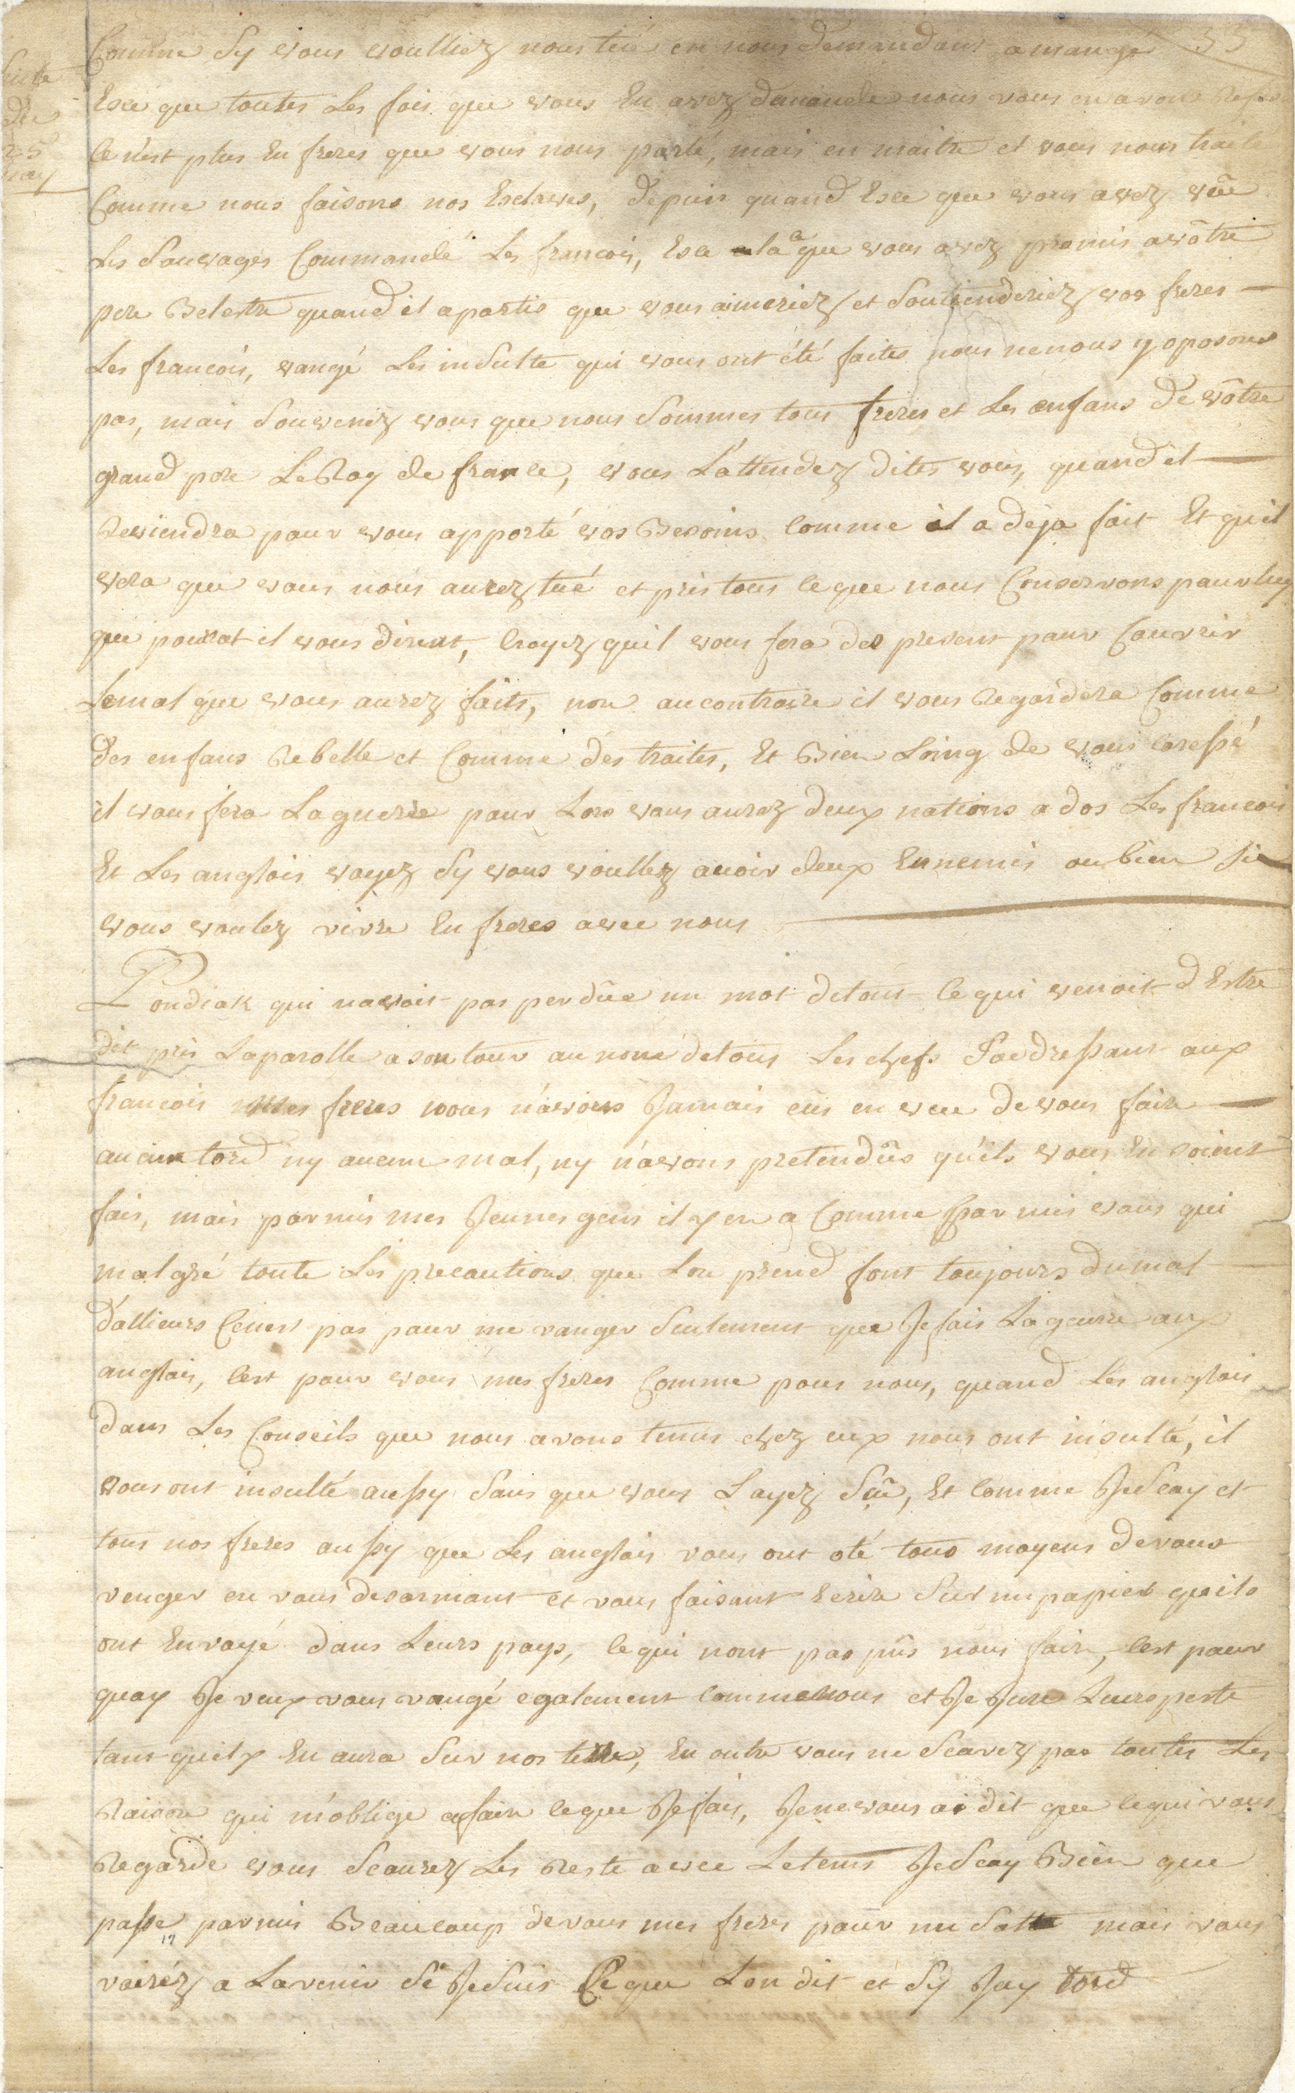 35
Suite
du
25
may
Comme Sy vous voulliez nous tué en nous demandant a mangé
Esce que toutes Les fois que vous En avez demandé nous vous en avons Refusé
Ce n'est plus En freres que vous nous parlé, mais en maitre et vous nous traité
Comme nous faisons nos Esclaves, depuis quand Esce que vous avez vûe
Les Sauvages Commandé Les francois, Esce la ce que vous avez promis a vôtre
pere Belestre quand il a partis que vous aimeriez et Soutienderiez vos freres
Les francois, vangé Les insulte qui vous ont été faites nous ne nous y oposons
pas, mais Souvenez vous que nous Sommes tous freres et Les enfans de vôtre
grand pere Le Roy de france, vous L'attendez dites vous, quand il
Reviendra pour vous apporté vos Besoins Comme il a déja fait Et qu'il
vera que vous nous aurez tué et pris tous ce que nous Conservons pour luy
que pourat il vous dirent, Croyez qu'il vous fera des present pour Couvrir
Le mal que vous aurez faits, non au contraire il vous Regardera Comme
des enfans Rebelle et Comme des traites, Et Bien Loing de vous caressé
il vous fera La guerre pour Lors vous aurez deux nations a dos Les francois
Et Les anglois voyez Sy vous voullez avoir deux Ennemis ou bien Si
vous voulez vivre En freres avec nous
Pondiak qui n'avoit pas perdûe un mot de tout ce qui venoit d'Estre
dit pris La parolle a son tour au nom de tous Les chefs S'addressant aux
francois mes freres nous n'avons Jamais eûs en vue de vous faire
aucun tord ny aucun mal, ny n'avons pretendûs qu'ils vous En soient
fais, mais parmis mes Jeunes gens il y en a Comme parmis vous qui
malgré toute Les precautions que Lon prend font toujours du mal
d'allieurs Ce n'est pas pour me vanger Seulement que Je fais La guerre aux
anglois, c'est pour vous mes freres Comme pour nous, quand Les anglois
dans Les Conseils que nous avons tenus chez eux nous ont insulté, il
vous ont insulté aussy Sans que vous L'ayez Sûe, Et Comme Je Scay et
tous nos freres aussy que Les anglois vous ont oté tous moyens de vous
venger en vous desarmant et vous faisant Ecrire Sur un papier qu'ils
ont Envoyé dans Leurs pays, ce qui n'ont pas pûs nous faire, c'est pour
quoy Je veux vous vangé egalement comme nous et Je Jure Leurs perte
tant qu'il y En aura Sur nos terres, En outre vous ne Scavez pas toutes Les
Raison qui m'oblige a faire ce que Je fais, Je ne vous ai dit que ce qui vous
Regarde vous Scaurez Les Reste avec Le tems Je Scay Bien que
passe parmis Beaucoup de vous mes freres pour un Satte mais vous
vairéz a L'avenir Si Je Suis Ce que L'on dit et Sy Jay tord